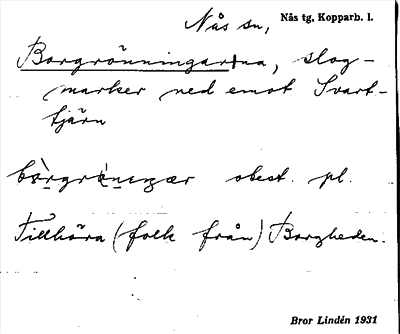 Nås sn, Nås tg, Kopparb. l.
Borgrönningarna, slog-
marker ned emot Svart-
tjärn
obest. pl.
Tillhöra (folk från) Borgheden.
Bror Lindén 1931